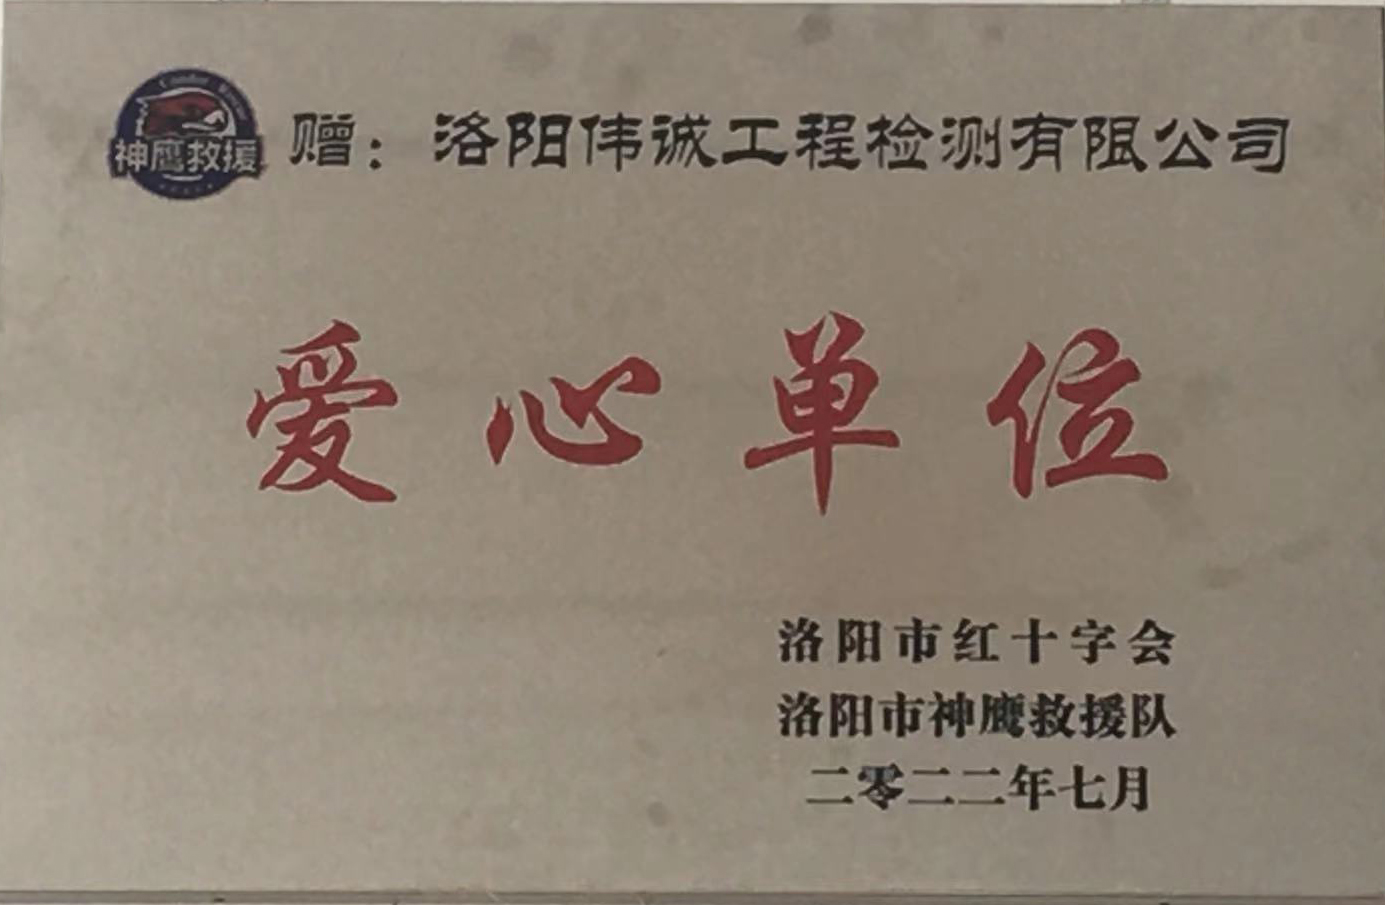 神鹰救援
赠：洛阳伟诚工程检测有限公司
爱心单位
洛阳市红十字会
洛阳市神鹰救援队
二零二二年七月